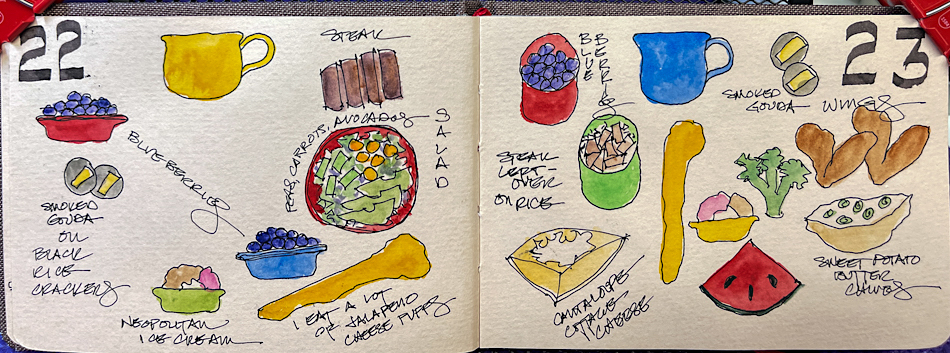 22
STEAK
PEAS, CARROTS, AVOCADOS
SALAD
BLUEBERRIES
SMOKED
GOUDA
ON
BLACK
RICE
CRACKERS
NEOPOLITAN
ICE CREAM
I EAT A LOT
OF JALAPEÑO
CHEESE PUFFS
BLUE
BERRIES
23
SMOKED
GOUDA
WINGS
STEAK
LEFT-
OVER
ON RICE
CANTALOPE
COTTAGE
CHEESE
SWEET POTATO
BUTTER
CHIVES